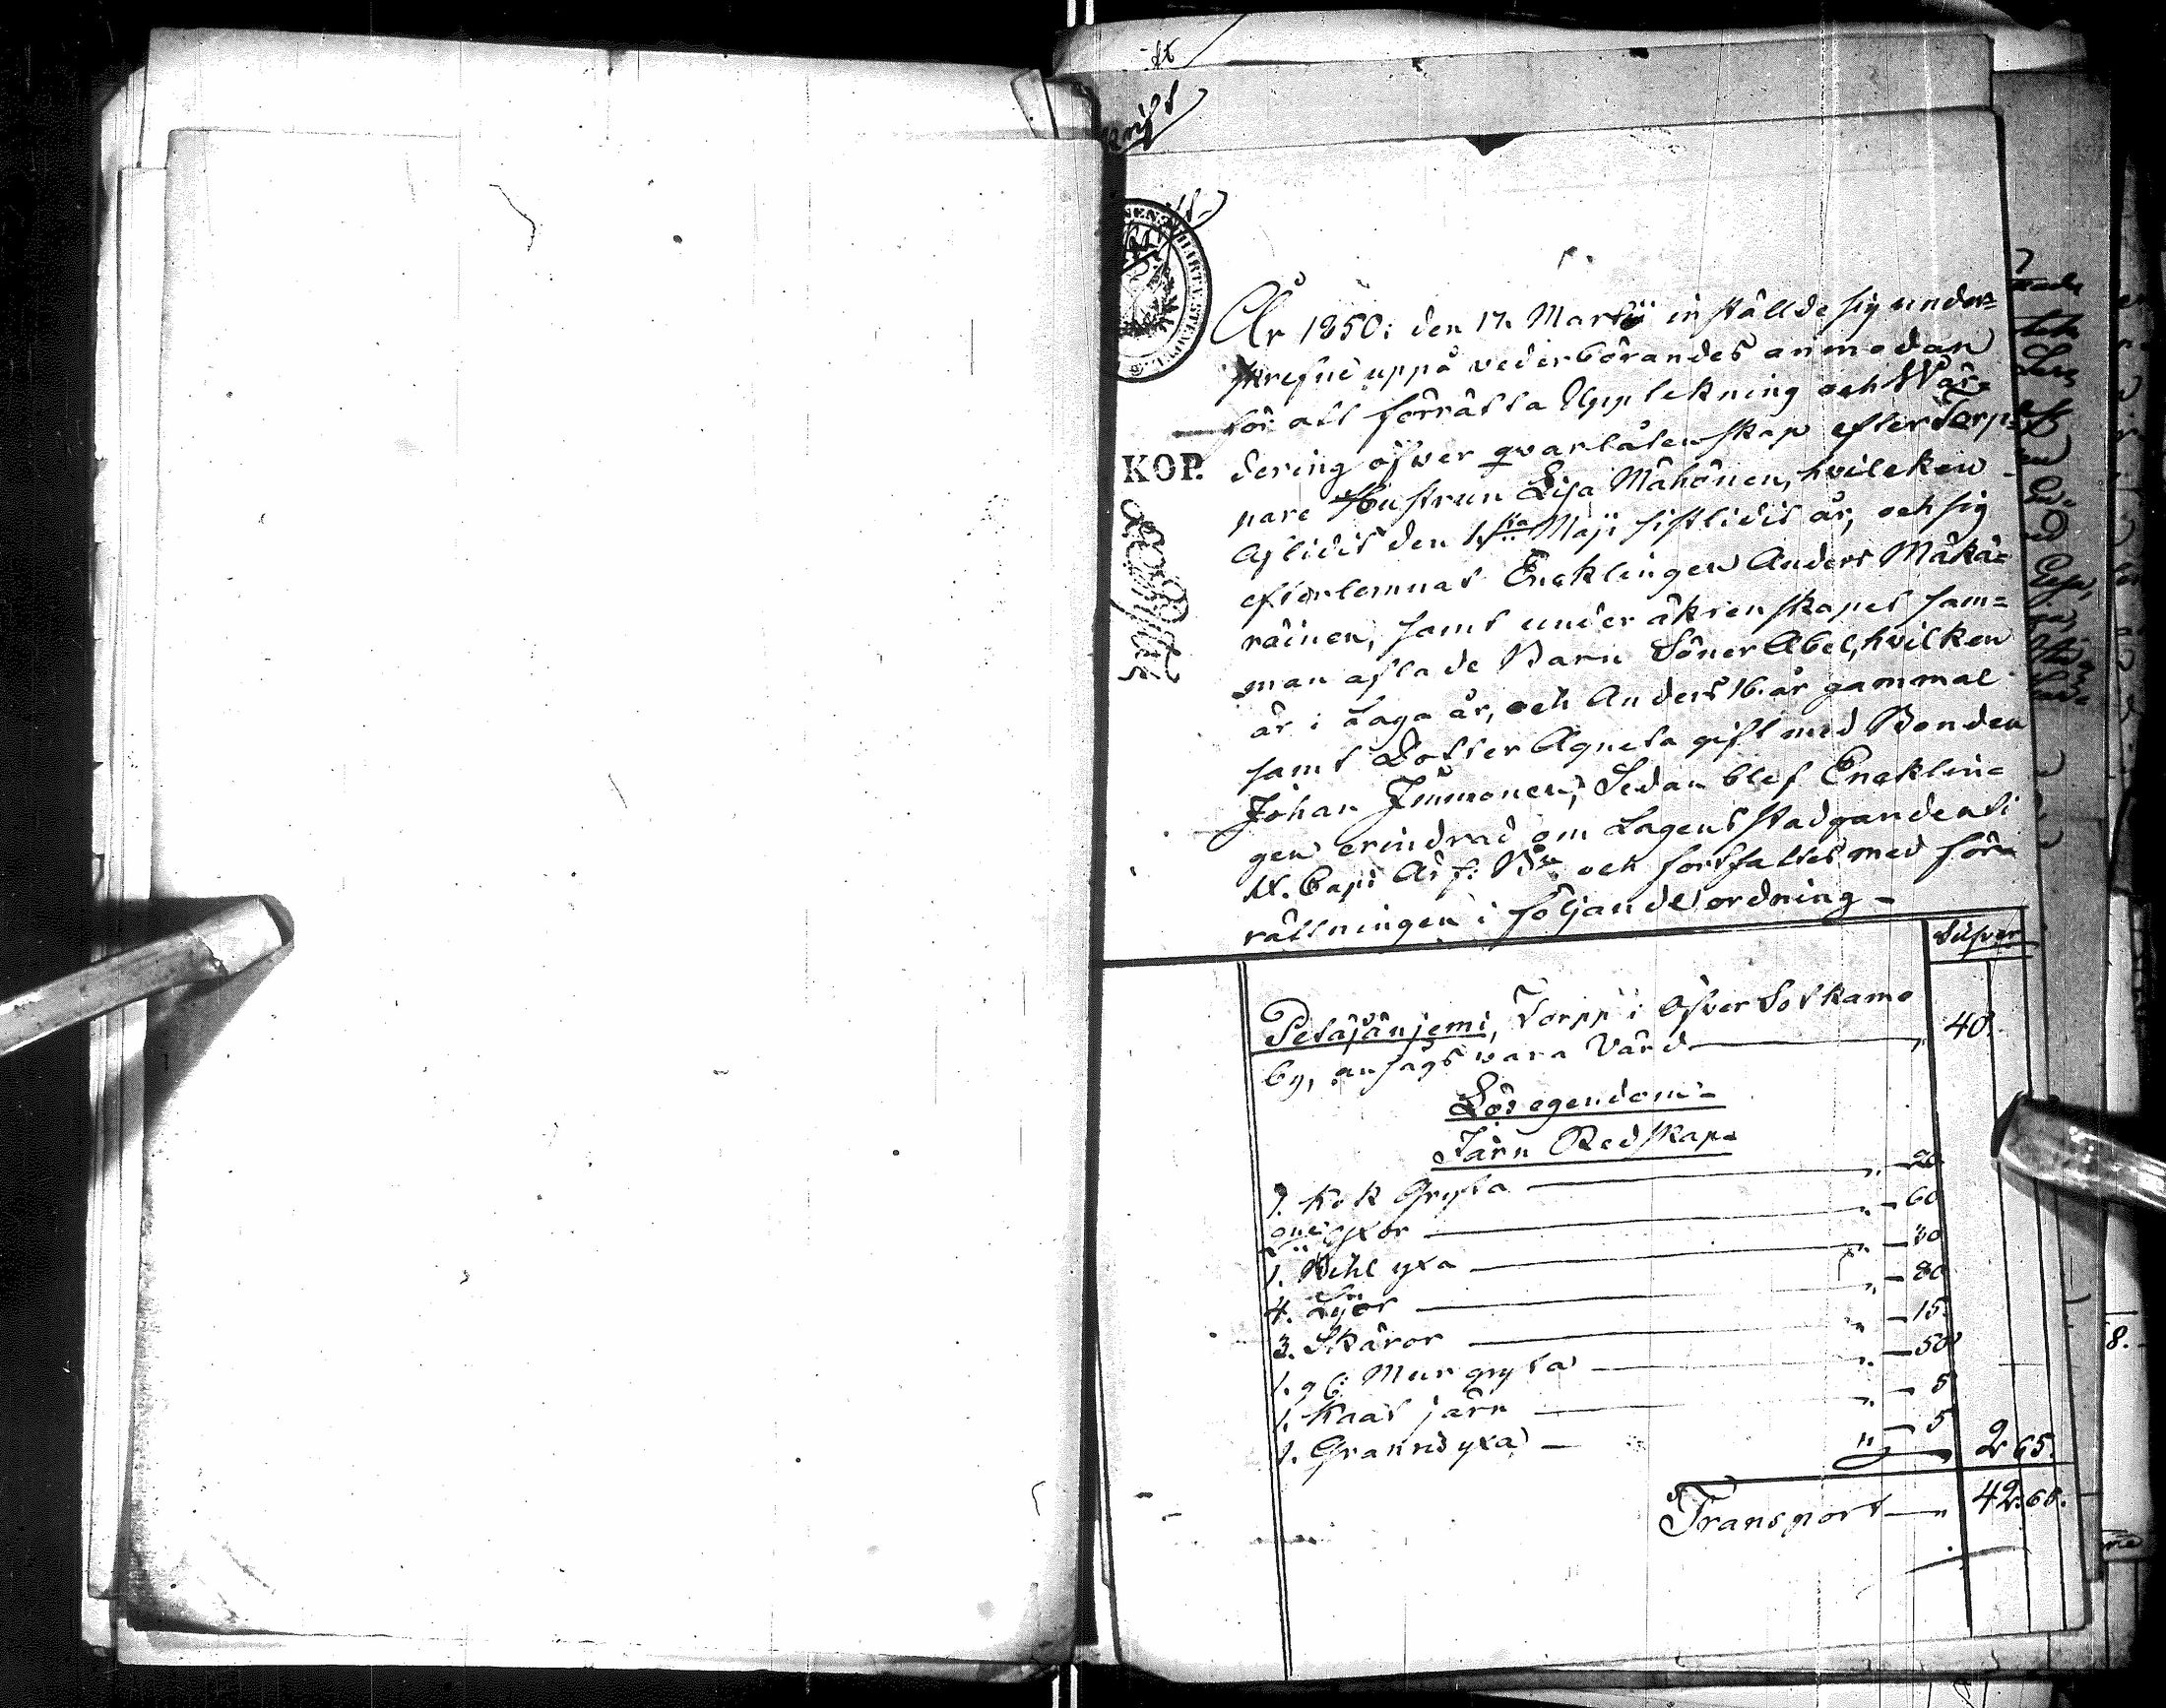 År 1850: den 17. Martii inställde sig under=
skrefne uppå vederbörandes anmodan
för att förrätta Uppteckning och Wär=
dering öfwer qvarlåtenskap efter Torp=
KOP.
pare Hustrun Lisa Mähönen, hvilcken
Aflidit den 1sta Maji sistlidit år, och sig
efterlemnat Encklingen Anders Mäkä=
räinen, samt under äktenskapet sam=
man aflade Barn Söner Abel, hvilken
är i Laga år, och Anders 16. år gammal
samt Dotter Agneta gift med Bonden
Johan Immonen; Sedan blef Encklin=
gen erindrad om Lagens stadganden i
IX. Cap: Ärf: B. och fortsattes med för=
rättningen i följande ordning -
Silfver
Petäjänjemi, Torpp i Öfver Sotkamo
by, ansågs vara värd — " 40.
Lösegendom -
Järn Redskap -
1. Kok Gryta — " — 20
yxor — " — 60
1. Bihl yxa — " — 30
4. Lijor — " — 80
3. Skäror — " — 15
1. gl: Mur gryta — " — 50
1. Kaat järn — " — 5
1. Grannis yxa — " — 5 2 65.
Transport — " 42. 65.
8.